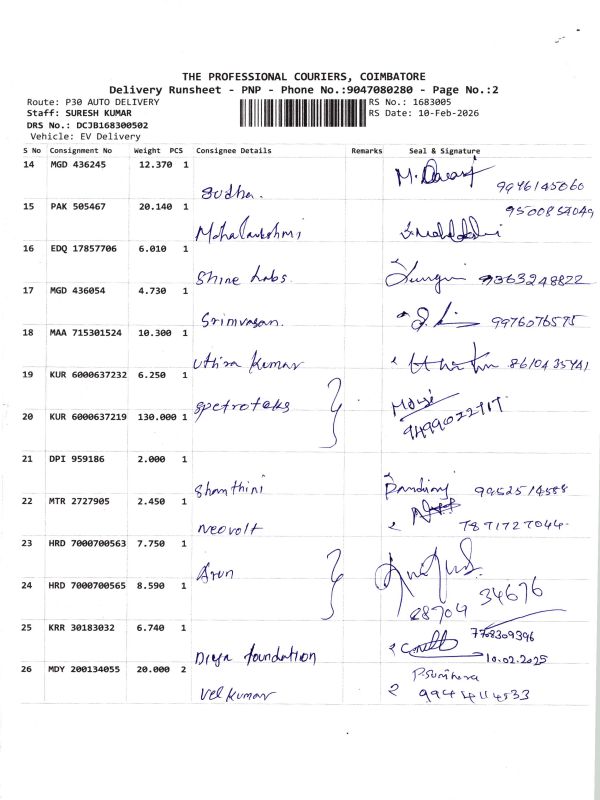 THE PROFESSIONAL COURIERS, COIMBATORE
Delivery Runsheet - PNP - Phone No.:9047080280 - Page No.:2
Route: P30 AUTO DELIVERY RS No.: 1683005
Staff: SURESH KUMAR RS Date: 10-Feb-2026
DRS No.: DCJB168300502
Vehicle: EV Delivery
S No Consignment No Weight PCS Consignee Details Remarks Seal & Signature
14 MGD 436245 12.370 1
Sudha. 9976145060
15 PAK 505467 20.140 1
Mahalakshmi
16 EDQ 17857706 6.010 1
Shine Labs 9363248822
17 MGD 436054 4.730 1
Srinivasan. 9976076575
18 MAA 715301524 10.300 1
Uthira Kumar
19 KUR 6000637232 6.250 1
Spetroteks
20 KUR 6000637219 130.000 1
21 DPI 959186 2.000 1
Shanthini Pandiyaj 9952514588
22 MTR 2727905 2.450 1
Neovolt 7871727044
23 HRD 7000700563 7.750 1
Arun
24 HRD 7000700565 8.590 1
34676
25 KRR 30183032 6.740 1
7708309396
Diya foundation 10.02.2025
26 MDY 200134055 20.000 2
Vel Kumar